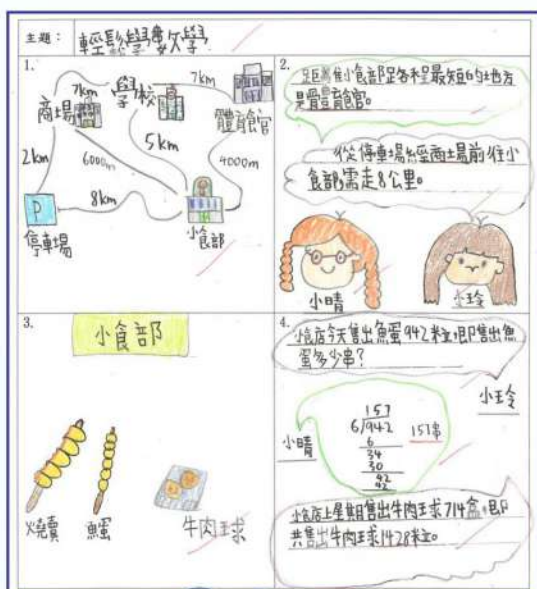 主題：輕鬆學數學
1.
7km
7km
商場
學校
體育館
5km
2km
6000m
4000m
8km
P
停車場
小食部
2.
距離小食部路程最短的地方
是體育館。
從停車場經商場前往小
食部需走8公里。
小晴
小玲
3.
小食部
燒賣
魚蛋
牛肉球
4.
小食店今天售出魚蛋942粒,即售出魚
蛋多少串?
小玲
小晴
157
6/942
6
34
30
42
42
157串
小食店上星期售出牛肉球714盒,即
共售出牛肉球1428粒。